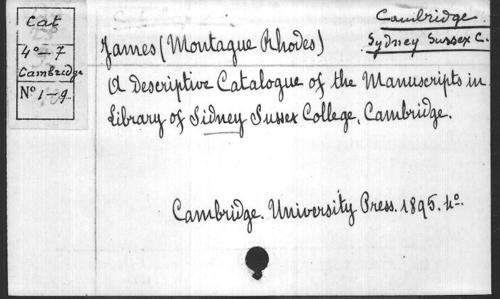 Cat
4º-7
Cambridge
Nº 1-9
Cambridge
Sydney Sussex C.
James (Montague Rhodes)
A Descriptive Catalogue of the Manuscripts in
Library of Sidney Sussex College, Cambridge.
Cambridge. University Press. 1895. 4º.